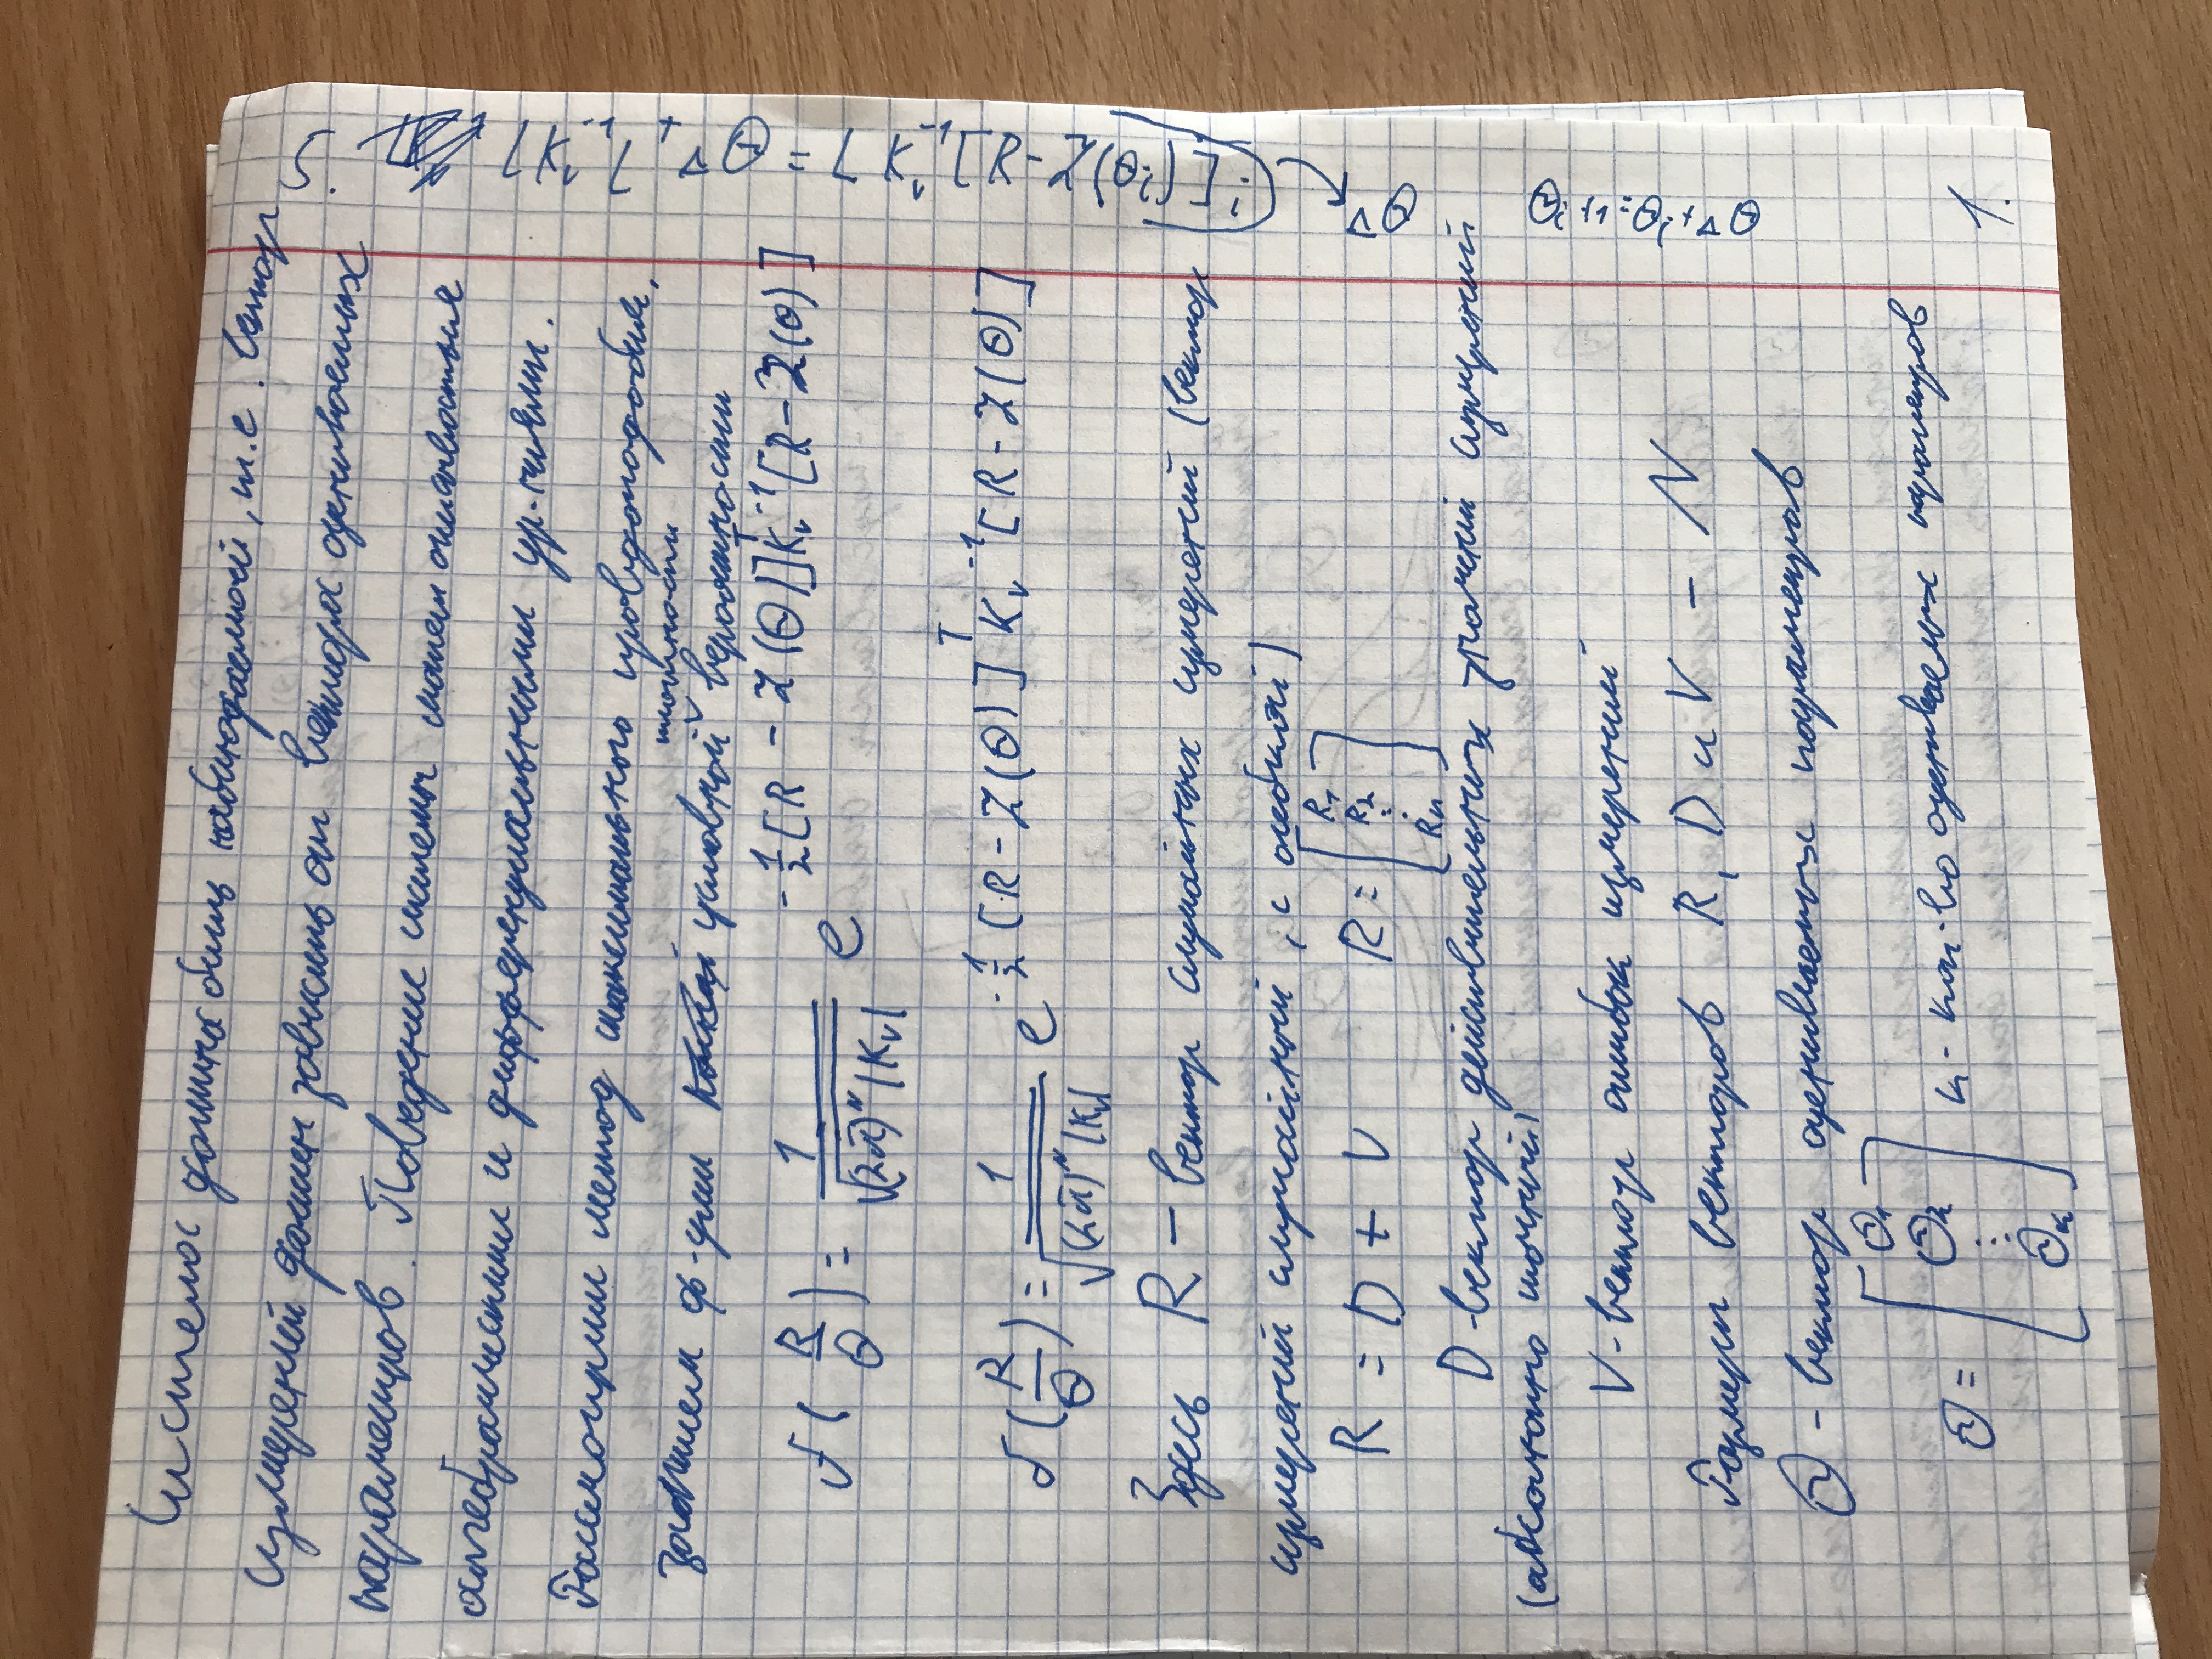 Система должна быть наблюдаемой, т.е. вектор
измерений должен зависить от вектора оцениваемых
параметров. Поведение системы может описываться
алгебраическими и дифференциальными ур-ниями.
Рассмотрим метод максимального правдоподобия,
запишем ф-цию условной плотности вероятности
f(R/Θ) = 1/√((2π)^N |K_v|) e^{-1/2 [R - Z(Θ)]^T K_v^{-1} [R - Z(Θ)]}
f(R/Θ) = 1/√((2π)^N |K_v|) e^{-1/2 [R - Z(Θ)]^T K_v^{-1} [R - Z(Θ)]}
Здесь R – вектор случайных измерений (вектор
измерений случайный, с ошибкой)
R = D + V R = [R₁ R₂ ⋮ Rₙ]
D - вектор действительных значений измерений
(абсолютно точный)
V - вектор ошибок измерений
Размеры векторов R, D и V – N
Θ - вектор оцениваемых параметров
Θ = [Θ₁ Θ₂ ⋮ Θₖ] к - кол-во оцениваемых параметров
5. L K_v^{-1} L^T ΔΘ = L K_v^{-1} [R - Z(Θᵢ)]; → ΔΘ
Θᵢ₊₁ = Θᵢ + ΔΘ
1.